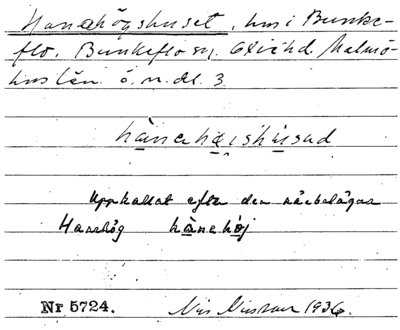 Hanehögshuset, hus i Bunke-
flo. Bunkeflo sn. Oxie hd. Malmö-
hus län. ö.n.dl. 3.
hànehøishúsud
Uppkallat efter den närbelägna
Hanehög hànehòj
Nr 5724. Nils Nilsson 1936.